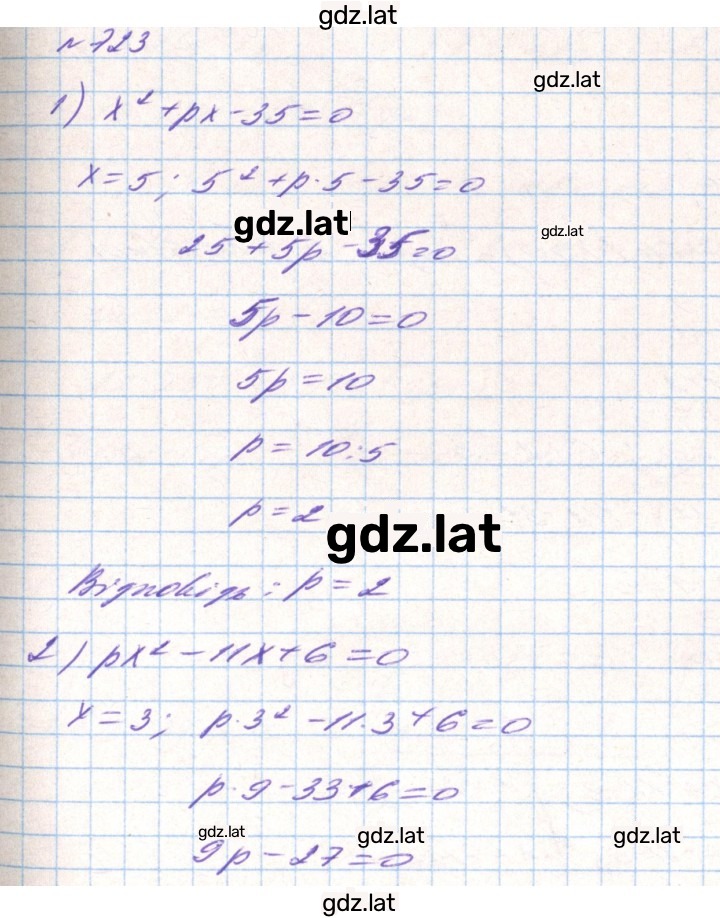 gdz.lat
№ 723
gdz.lat
1) x² + px - 35 = 0
x = 5; 5² + p · 5 - 35 = 0
gdz.lat
gdz.lat
25 + 5p - 35 = 0
5p - 10 = 0
5p = 10
p = 10 : 5
p = 2
gdz.lat
Відповідь: p = 2
2) px² - 11x + 6 = 0
x = 3; p · 3² - 11 · 3 + 6 = 0
p · 9 - 33 + 6 = 0
gdz.lat gdz.lat gdz.lat
9p - 27 = 0
gdz.lat